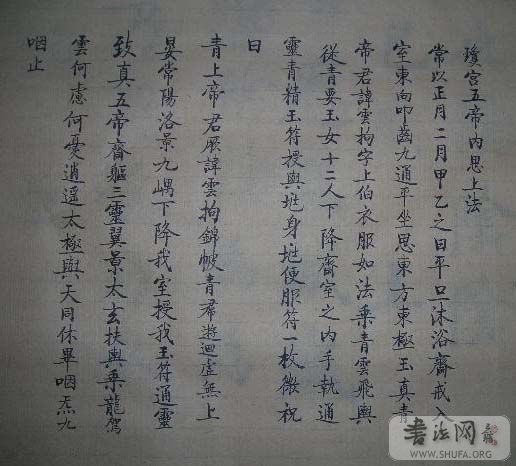 瓊宮五帝內思上法
常以正月二月甲乙之日平旦沐浴齋戒入
室東向叩齒九通平坐思東方東極玉真青
帝君諱雲拘字上伯衣服如法乘青雲飛輿
從青要玉女十二人下降齋室之內手執通
靈青精玉符授與垗身垗便服符一枚微祝
曰
青上帝君厥諱雲拘錦帔青帬遊迴虛無上
晏常陽洛景九嵎下降我室授我玉符通靈
致真五帝齊軀三靈翼景太玄扶輿乘龍駕
雲何慮何憂逍遥太極與天同休畢咽炁九
咽止
书法网
WWW.SHUFA.ORG